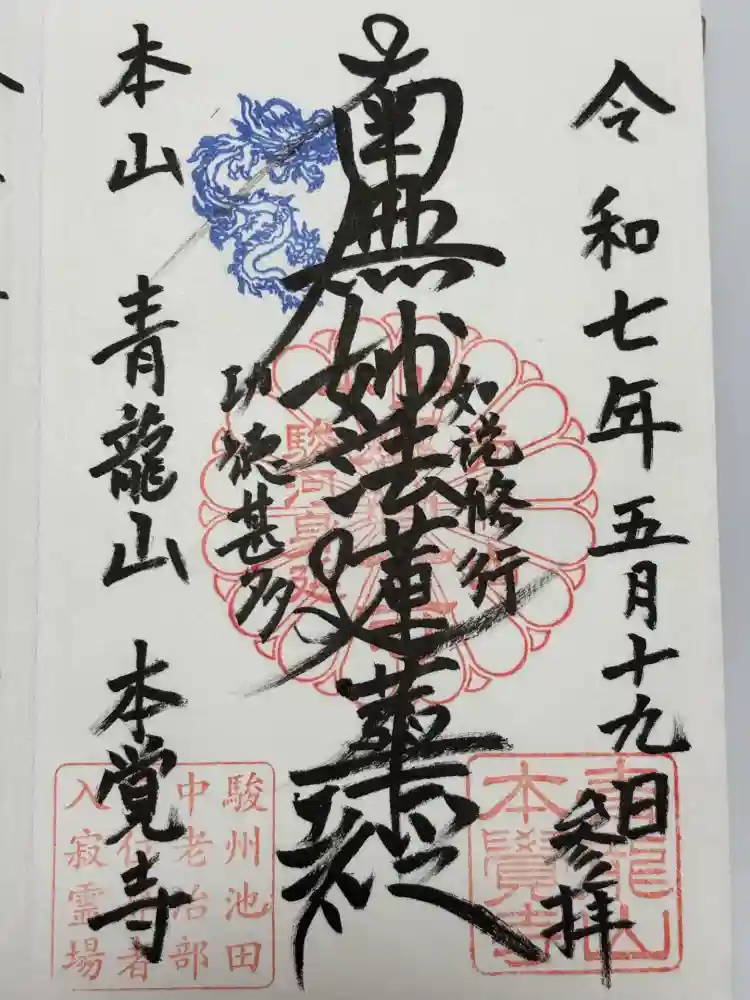 令和七年五月十九日参拝
如説修行
南無妙法蓮華経
功徳甚多
本山 青龍山 本覚寺
青龍山
本覺寺
駿州池田
中老治部
入寂霊場
駿河